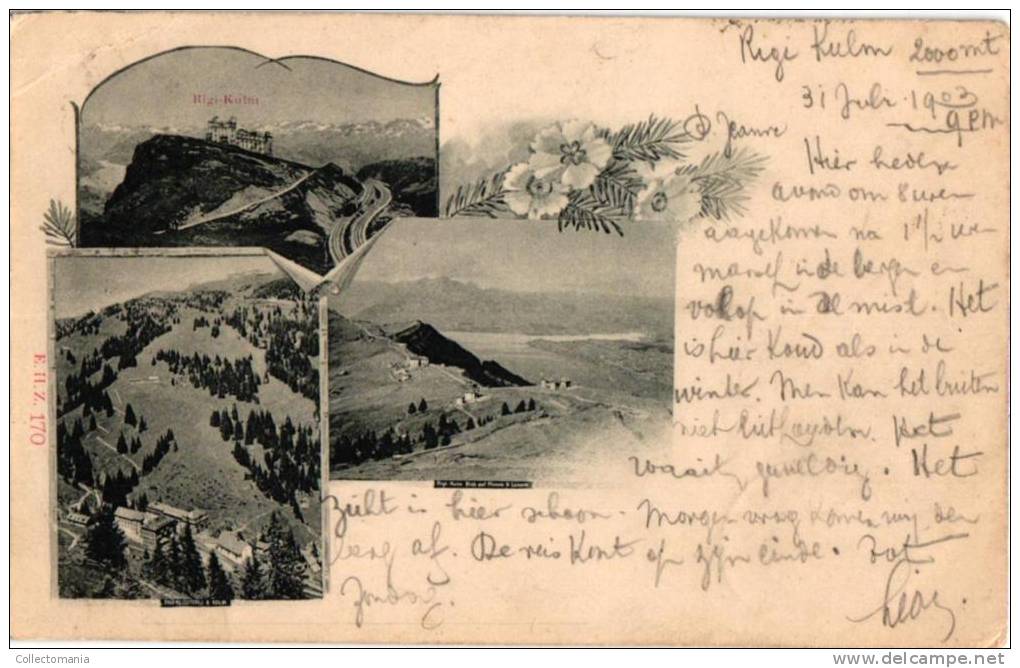 Rigi Kulm 2000 mt
31 Juli 1903
9 PM
Jeanne
Rigi-Kulm
Hier heden
avond om 8 uren
aagekomen na 1 1/2 uur
marsch in de bergen en
volop in de mist. Het
is hier koud als in de
winter. Men kan het buiten
niet uithouden. Het
waait geweldig. Het
zicht is hier schoon. Morgen vroeg komen wij den
berg af. De reis komt op zijn einde. Tot
Zondag.
E.H.Z. 170
Rigi-Kulm Blick auf
& KULM
Collectomania
http://www.delcampe.net